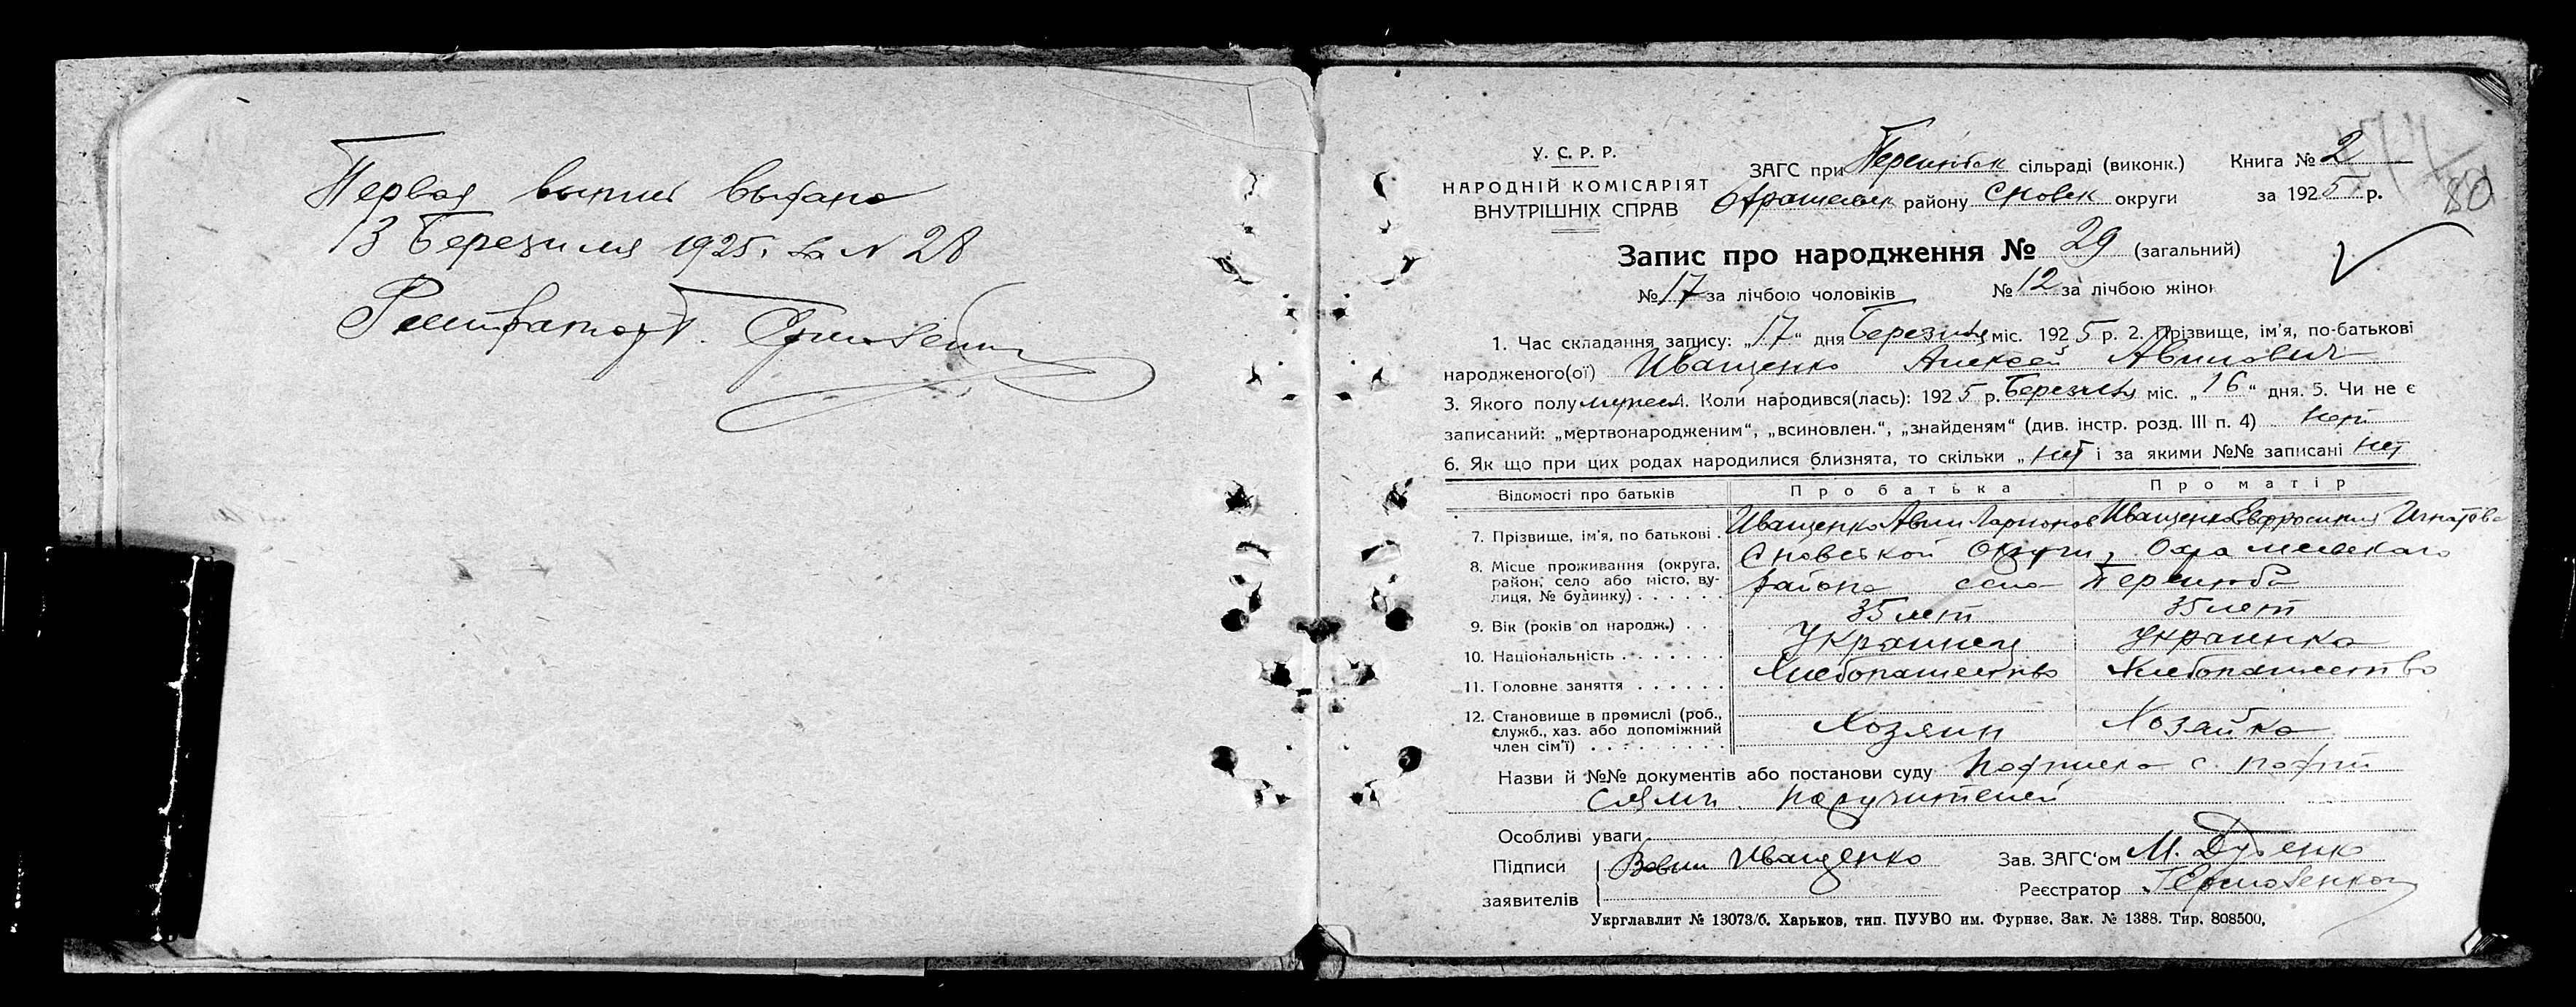 Первая выпись выдана
13 Березиля 1925 г. за N 28
Регистратор Т. Ермоленко
У. С. Р. Р.
НАРОДНІЙ КОМІСАРІЯТ
ВНУТРІШНІХ СПРАВ
ЗАГС при Перелюбск сільраді (виконк.) Книга № 2
району Сновск округи за 1925 р.
80
Запис про народження № 29 (загальний)
№ 17 за лічбою чоловіків № 12 за лічбою жінок
1. Час складання запису: „17“ дня Березиля міс. 1925 р. 2. Прізвище, ім'я, по-батькові
народженого(ої) Иващенко Алексей Авилович
3. Якого полу мужеск 4. Коли народився(лась): 1925 р. Березиля міс. „16“ дня. 5. Чи не є
записаний: „мертвонародженим“, „всиновлен.“, „знайденям“ (див. інстр. розд. III п. 4) нет
6. Як що при цих родах народилися близнята, то скільки „нет і за якими №№ записані нет
Відомості про батьків Про батька Про матір
7. Прізвище, ім'я, по батькові . Иващенко Авил Ларионов Иващенко Евфросиния Игнатова
8. Місце проживання (округа, район, село або місто, вулиця, № будинку) . . . . . . Сновской Округи,
района село Перелюба
9. Вік (років од народж.) . . 35 лет 35 лет
10. Національність . . . . . . . Украинец Украинка
11. Головне заняття . . . . . . Хлебопашество Хлебопашество
12. Становище в промислі (роб., служб., хаз. або допоміжний член сім'ї) . . . . . . . . . Хозяин Хозяйка
Назви й №№ документів або постанови суду
поручителей
Особливі уваги
Підписи Иващенко Зав. ЗАГС'ом М. Дубенко
заявителів Реєстратор Т Ермоленко
Укрглавлит № 13073/б. Харьков, тип. ПУУВО им. Фурнзе. Зак. № 1388. Тир. 808500,